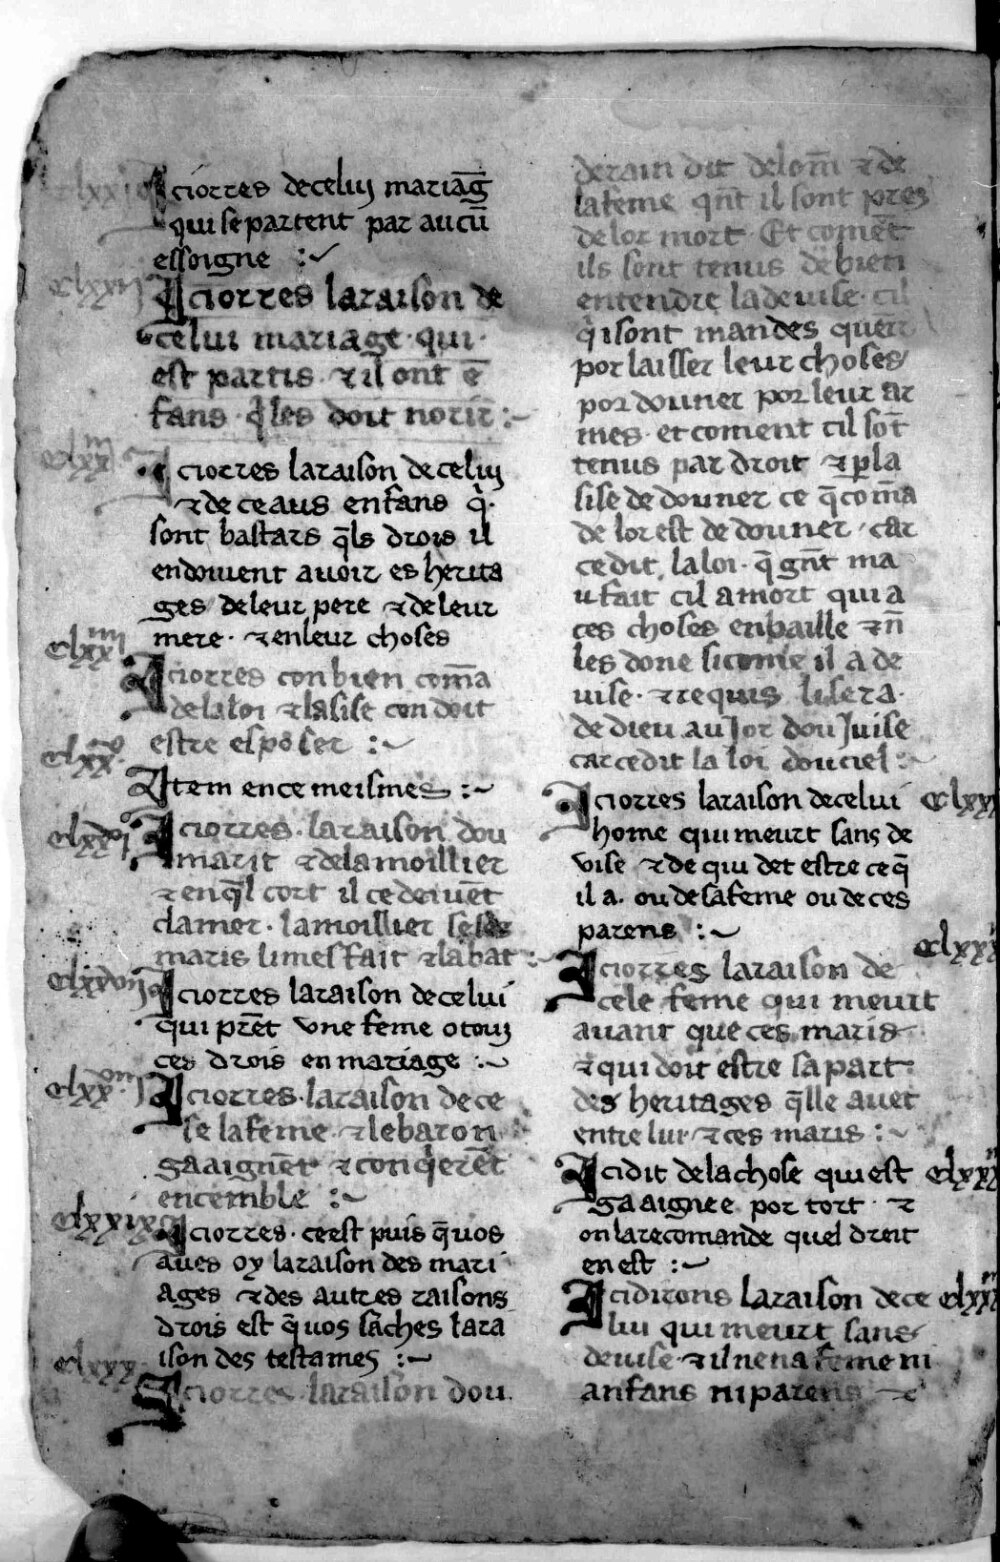 clxxi
Iciorres decelui mariag̅
qui se partent par aucu̅
essoigne :~
clxxii
Iciorres laraison de
celui mariage · qui ·
est partis · ⁊ il ont e̅
fans · q̇les doit norir̅ :~
clxxiii
Iciorres laraison decelui
⁊ de ceaus enfans q̇ ·
sont bastars q̅ls drois il
endoivent avoir es herita
ges deleur pere ⁊ deleur
mere · ⁊ enleur choses
clxxiiii
Iciorres conbien com̅a
delaloi ⁊ lasise con doit
estre esposer :~
clxxvo
Item ence meismes :~
clxxvio
Iciorres · laraison dou
marit ⁊ delamoillier
⁊ enq̅l cort il cedeivēt
clamer · lamoillier se ses
maris li mesfait ⁊ labat :~
clxxvii
Iciorres laraison decelui
qui pre̅t une feme o touz
ces drois en mariage :~
clxxviii
Iciorres · laraison dece
se lafeme · ⁊ lebaron
gaaigne̅t ⁊ conq̇ere̅t
encemble :~
clxxix
Iciorres · ceest puis q̅ vos
aves oy laraison des mari
ages ⁊ des autres raisons
drois est q̅ vos saches lara
ison des testames :~
clxxx
Iciorres laraison dou
derain dit delom̅ ⁊ de
lafeme qn̅t il sont pres
delor mort · Et come̅t
ils sont tenus de bien
entendre ladevise · cil
q̇ isont mandes quer̅r
por laisser leur choses
por douner por leur ar
mes · et coment cil so̅t
tenus par droit ⁊ p̲la
sise de douner ce q̅ com̅a
de lor est de douner · car
cedit laloi · q̅ gn̅t ma
u fait cil amort qui a
ces choses enbaille ⁊ n̅
les done si come il a de
vise · ⁊ requis lisera ·
de dieu au Jor dou Juise
car cedit la loi douciel :~
Iciorres laraison decelui clxxx
home qui meurt sans de
vise ⁊ de qui det estre ce q̅
il a · ou de safeme ou de ces
parens :~
clxxx
Iciorres laraison de
cele feme qui meurt
avant que ces maris
⁊ qui doit estre sa part
des heritages q̅lle avet
entre lui ⁊ ces maris :~
Icidit delachose qui est clxxx
gaaignee por tort · ⁊
on larecomande quel dreit
en est :~
Icidirons laraison de ce clxxx
lui qui meurt sans
devise ⁊ il nena feme ni
anfans ni parens ~